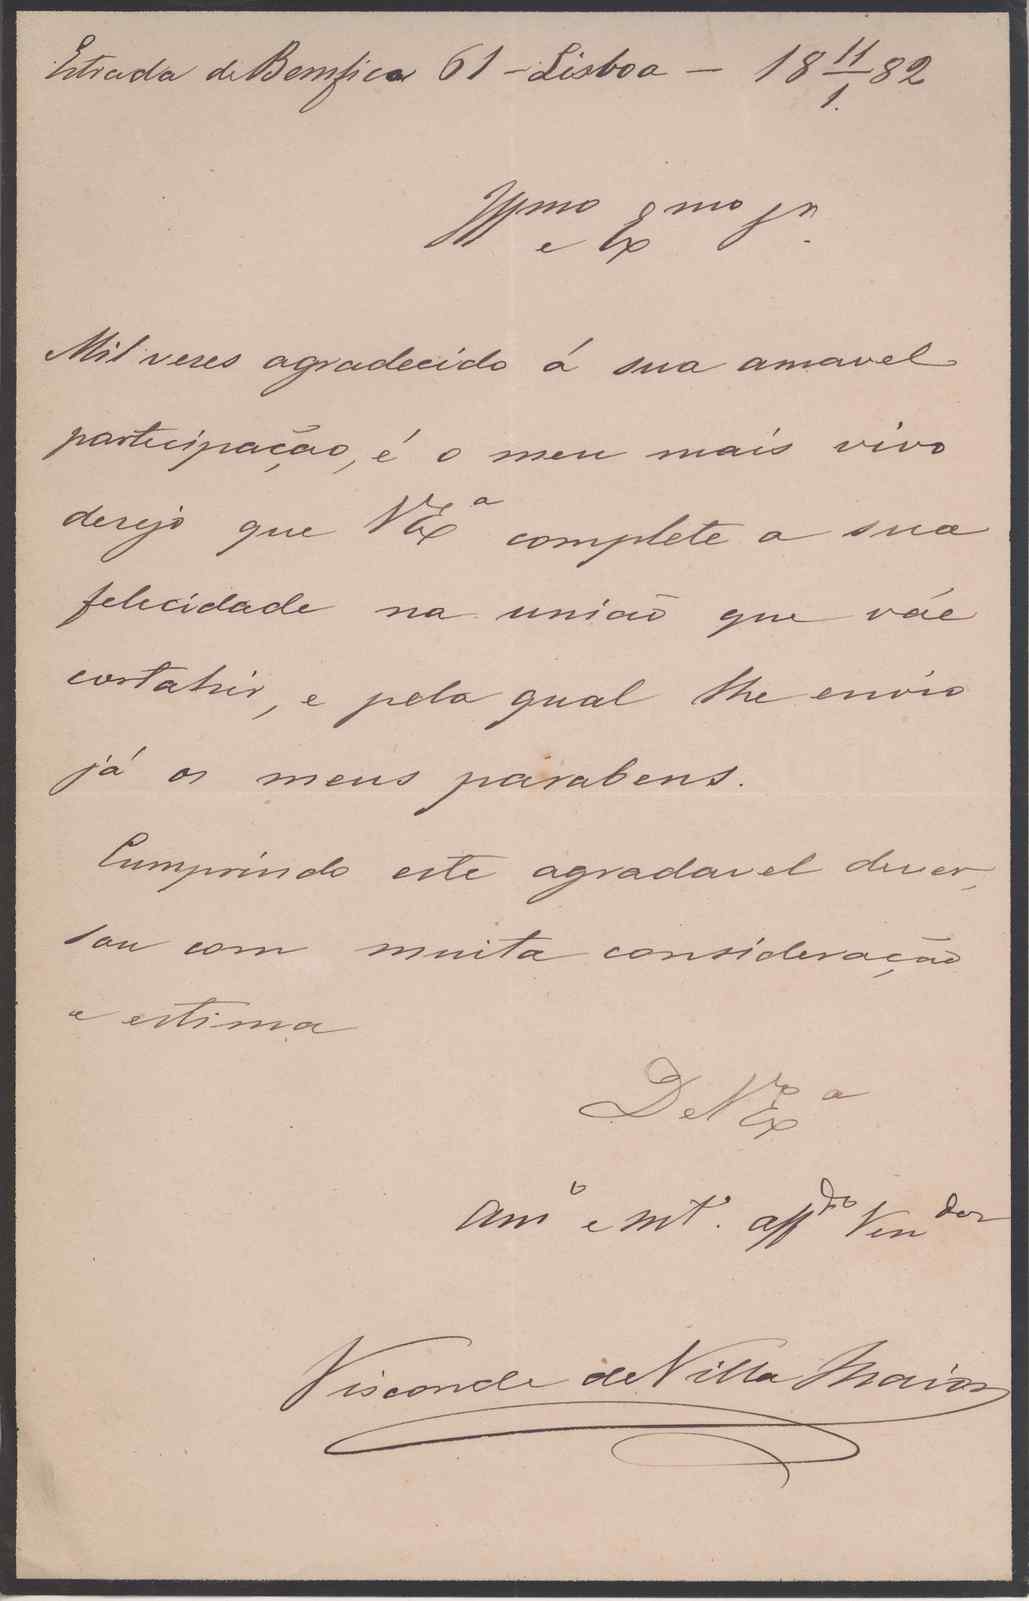 Estrada de Bemfica 61 - Lisboa - 18 11/1. 82
Illmo e Exmo Sr.
Mil vezes agradecido á sua amavel
participação, é o meu mais vivo
desejo que V Exa complete a sua
felicidade na união que váe
contahir, e pela qual lhe envio
já os meus parabens.
Cumprindo este agradavel dever,
sou com muita consideração
e estima
De V Exa
Amo e mto. affdo Vendor
Visconde de Villa Maior